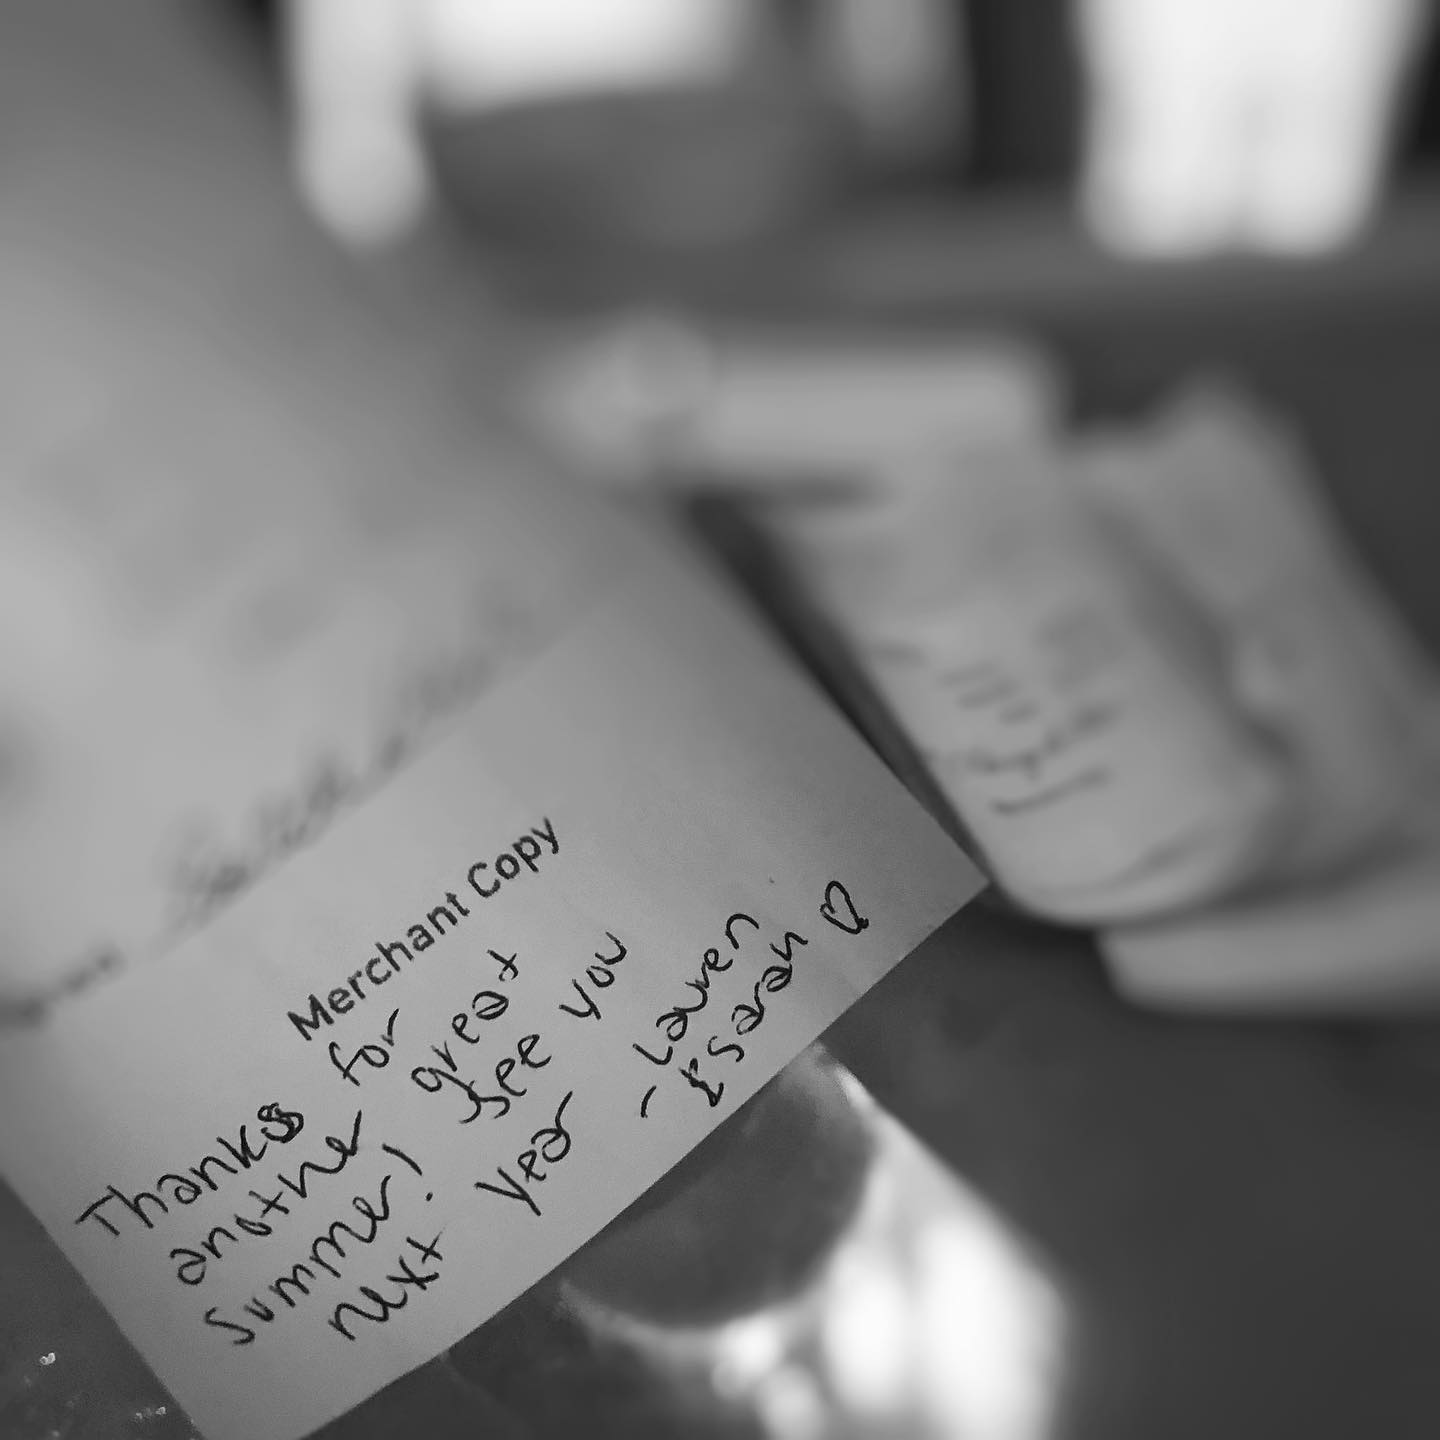 Merchant Copy
Thanks for
another great
summer! see you
next year - Lauren
& Sarah ♡